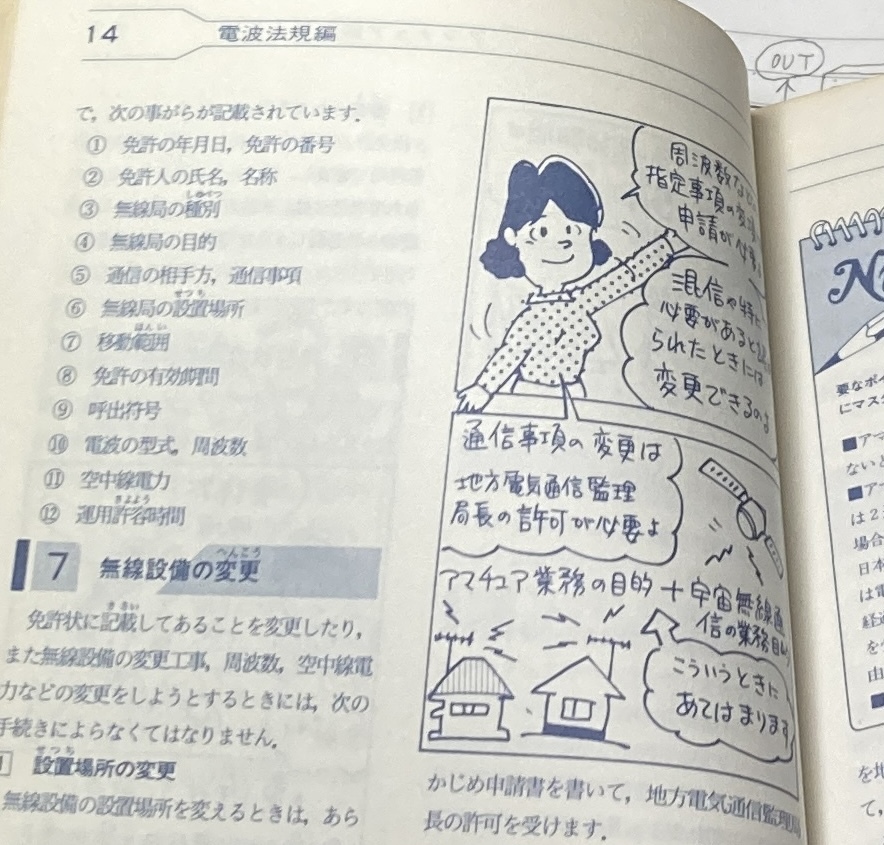 14
電波法規編
で，次の事がらが記載されています．
① 免許の年月日，免許の番号
② 免許人の氏名，名称
③ 無線局の種別
しゅべつ
④ 無線局の目的
⑤ 通信の相手方，通信事項
⑥ 無線局の設置場所
せっち
⑦ 移動範囲
はんい
⑧ 免許の有効期間
⑨ 呼出符号
⑩ 電波の型式，周波数
⑪ 空中線電力
⑫ 運用許容時間
きょよう
7 無線設備の変更
へんこう
免許状に記載してあることを変更したり，
きさい
また無線設備の変更工事，周波数，空中線電
力などの変更をしようとするときには，次の
手続きによらなくてはなりません．
設置場所の変更
せっち
無線設備の設置場所を変えるときは，あら
周波数な
指定事項の変
申請が必要
混信や特に
必要があると認
られたときには
変更できるのよ
通信事項の変更は
地方電気通信監理
局長の許可が必要よ
アマチュア業務の目的＋宇宙無線通
信の業務目的
こういうときに
あてはまります
かじめ申請書を書いて，地方電気通信監理局
長の許可を受けます．
OUT
要なポイ
にマスタ
■アマ
ないと
■ア
は2
場合
日本
は電
経過
を
由
■
を地
て，